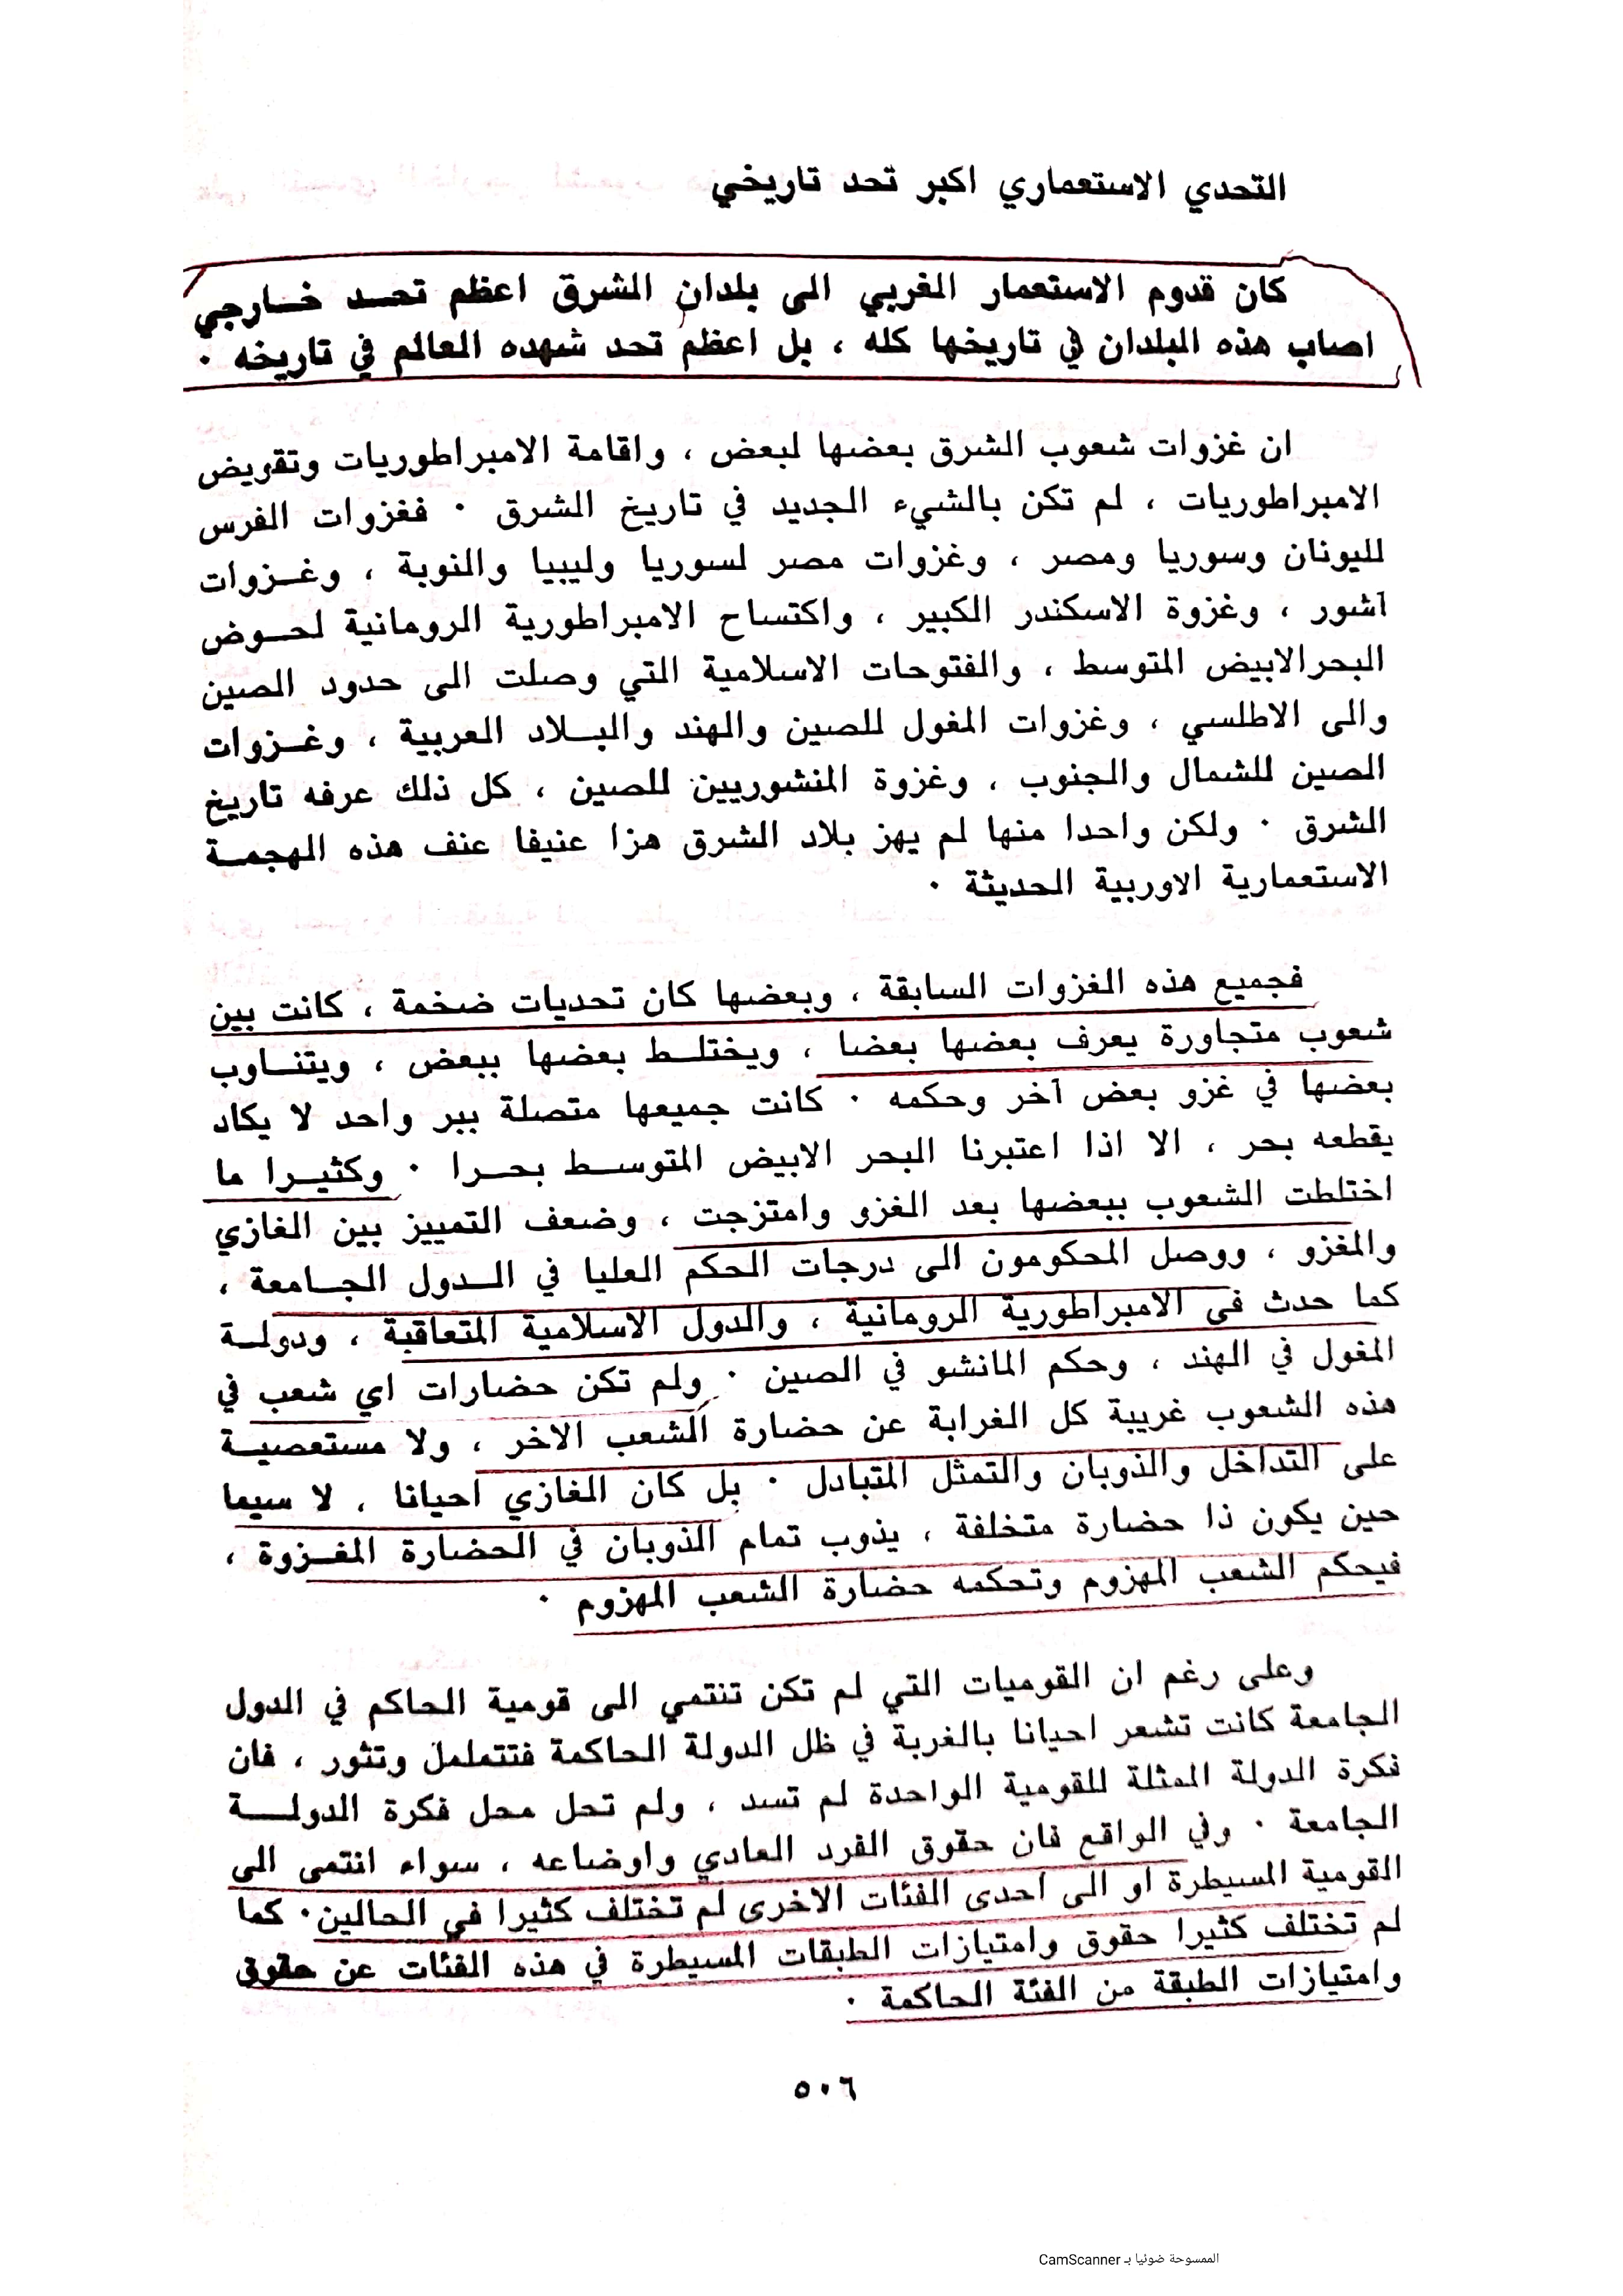 التحدي الاستعماري اكبر تحد تاريخي
كان قدوم الاستعمار الغربي الى بلدان الشرق اعظم تحد خارجي
اصاب هذه البلدان في تاريخها كله ، بل اعظم تحد شهده العالم في تاريخه ٠
ان غزوات شعوب الشرق بعضها لبعض ، واقامة الامبراطوريات وتقويض
الامبراطوريات ، لم تكن بالشيء الجديد في تاريخ الشرق ٠ فغزوات الفرس
لليونان وسوريا ومصر ، وغزوات مصر لسوريا وليبيا والنوبة ، وغزوات
آشور ، وغزوة الاسكندر الكبير ، واكتساح الامبراطورية الرومانية لحوض
البحرالابيض المتوسط ، والفتوحات الاسلامية التي وصلت الى حدود الصين
والى الاطلسي ، وغزوات المغول للصين والهند والبلاد العربية ، وغزوات
الصين للشمال والجنوب ، وغزوة المنشوريين للصين ، كل ذلك عرفه تاريخ
الشرق ٠ ولكن واحدا منها لم يهز بلاد الشرق هزا عنيفا عنف هذه الهجمة
الاستعمارية الاوربية الحديثة ٠
فجميع هذه الغزوات السابقة ، وبعضها كان تحديات ضخمة ، كانت بين
شعوب متجاورة يعرف بعضها بعضا ، ويختلط بعضها ببعض ، ويتناوب
بعضها في غزو بعض آخر وحكمه ٠ كانت جميعها متصلة ببر واحد لا يكاد
يقطعه بحر ، الا اذا اعتبرنا البحر الابيض المتوسط بحرا ٠ وكثيرا ما
اختلطت الشعوب ببعضها بعد الغزو وامتزجت ، وضعف التمييز بين الغازي
والمغزو ، ووصل المحكومون الى درجات الحكم العليا في الدول الجامعة ،
كما حدث في الامبراطورية الرومانية ، والدول الاسلامية المتعاقبة ، ودولة
المغول في الهند ، وحكم المانشو في الصين ٠ ولم تكن حضارات اي شعب في
هذه الشعوب غريبة كل الغرابة عن حضارة الشعب الاخر ، ولا مستعصية
على التداخل والذوبان والتمثل المتبادل ٠ بل كان الغازي احيانا ، لا سيما
حين يكون ذا حضارة متخلفة ، يذوب تمام الذوبان في الحضارة المغزوة ،
فيحكم الشعب المهزوم وتحكمه حضارة الشعب المهزوم ٠
وعلى رغم ان القوميات التي لم تكن تنتمي الى قومية الحاكم في الدول
الجامعة كانت تشعر احيانا بالغربة في ظل الدولة الحاكمة فتتململ وتثور ، فان
فكرة الدولة الممثلة للقومية الواحدة لم تسد ، ولم تحل محل فكرة الدولة
الجامعة ٠ وفي الواقع فان حقوق الفرد العادي واوضاعه ، سواء انتمى الى
القومية المسيطرة او الى احدى الفئات الاخرى لم تختلف كثيرا في الحالين٠ كما
لم تختلف كثيرا حقوق وامتيازات الطبقات المسيطرة في هذه الفئات عن حقوق
وامتيازات الطبقة من الفئة الحاكمة ٠
٥٠٦
الممسوحة ضوئيا بـ CamScanner